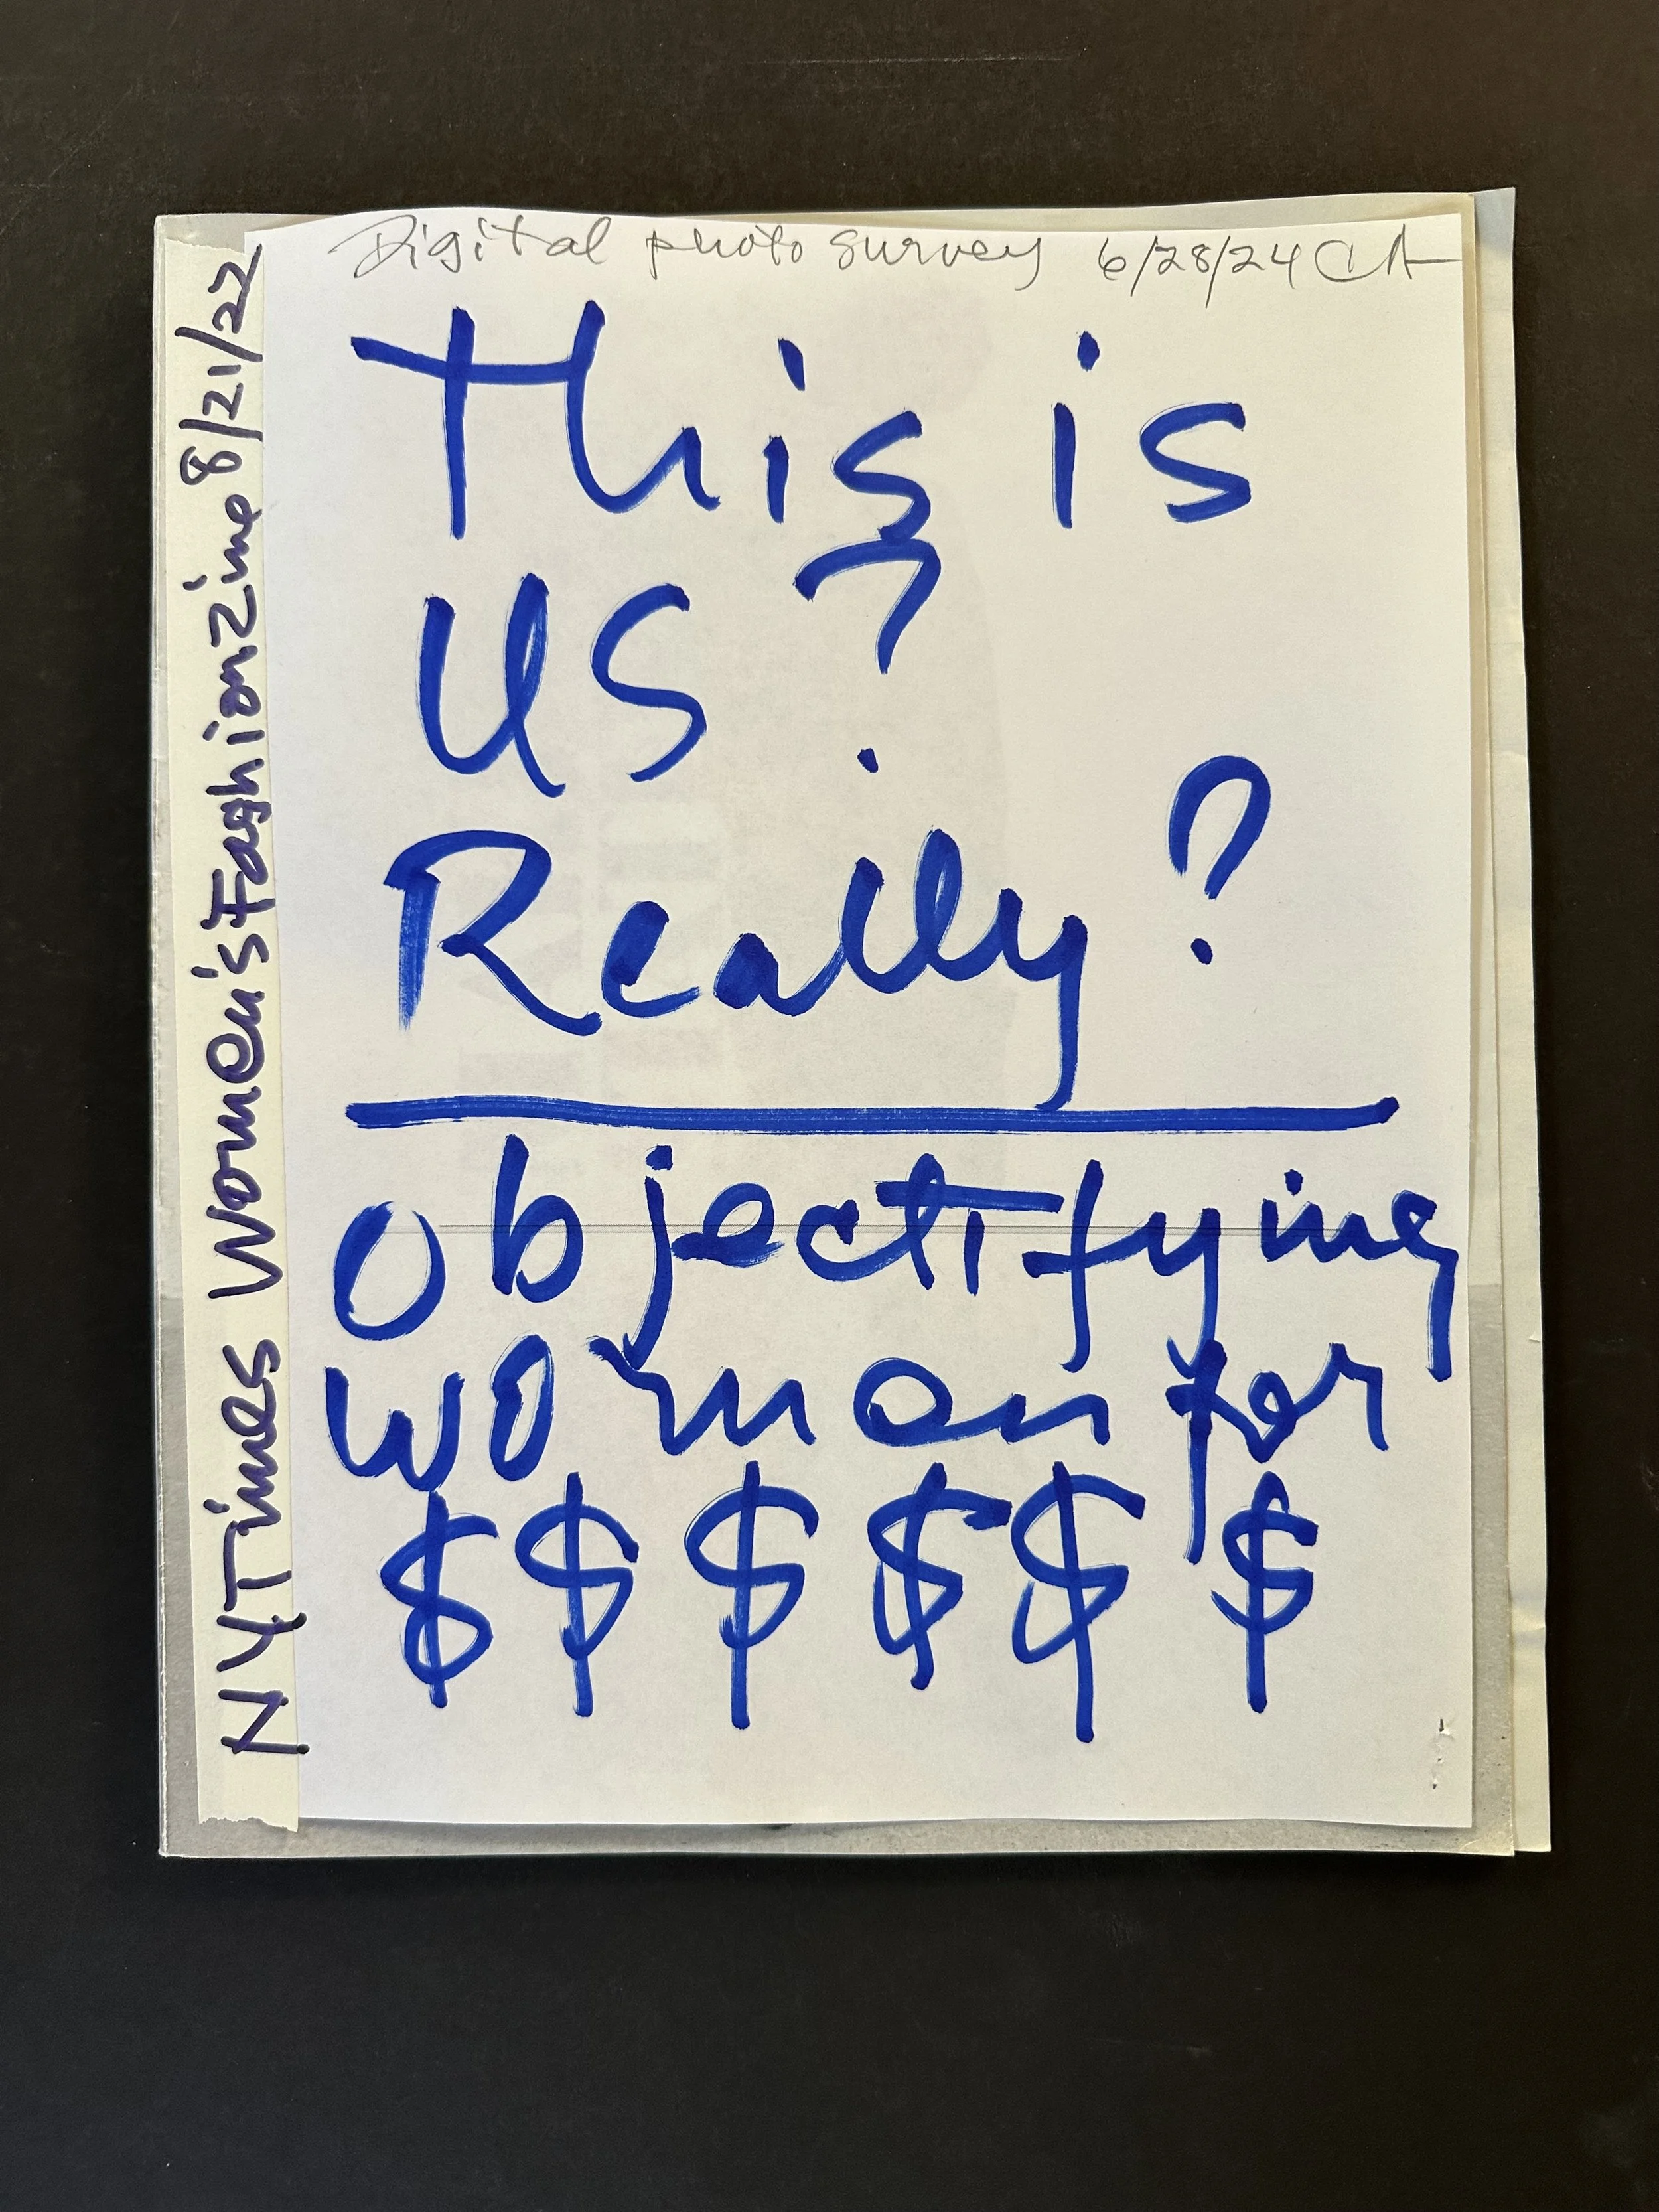 Digital photo survey 6/28/24 CA
This is
US?
Really?
Objectifying
woman for
$ $ $ $ $ $
NYTimes Women's Fashion Zine 8/21/22